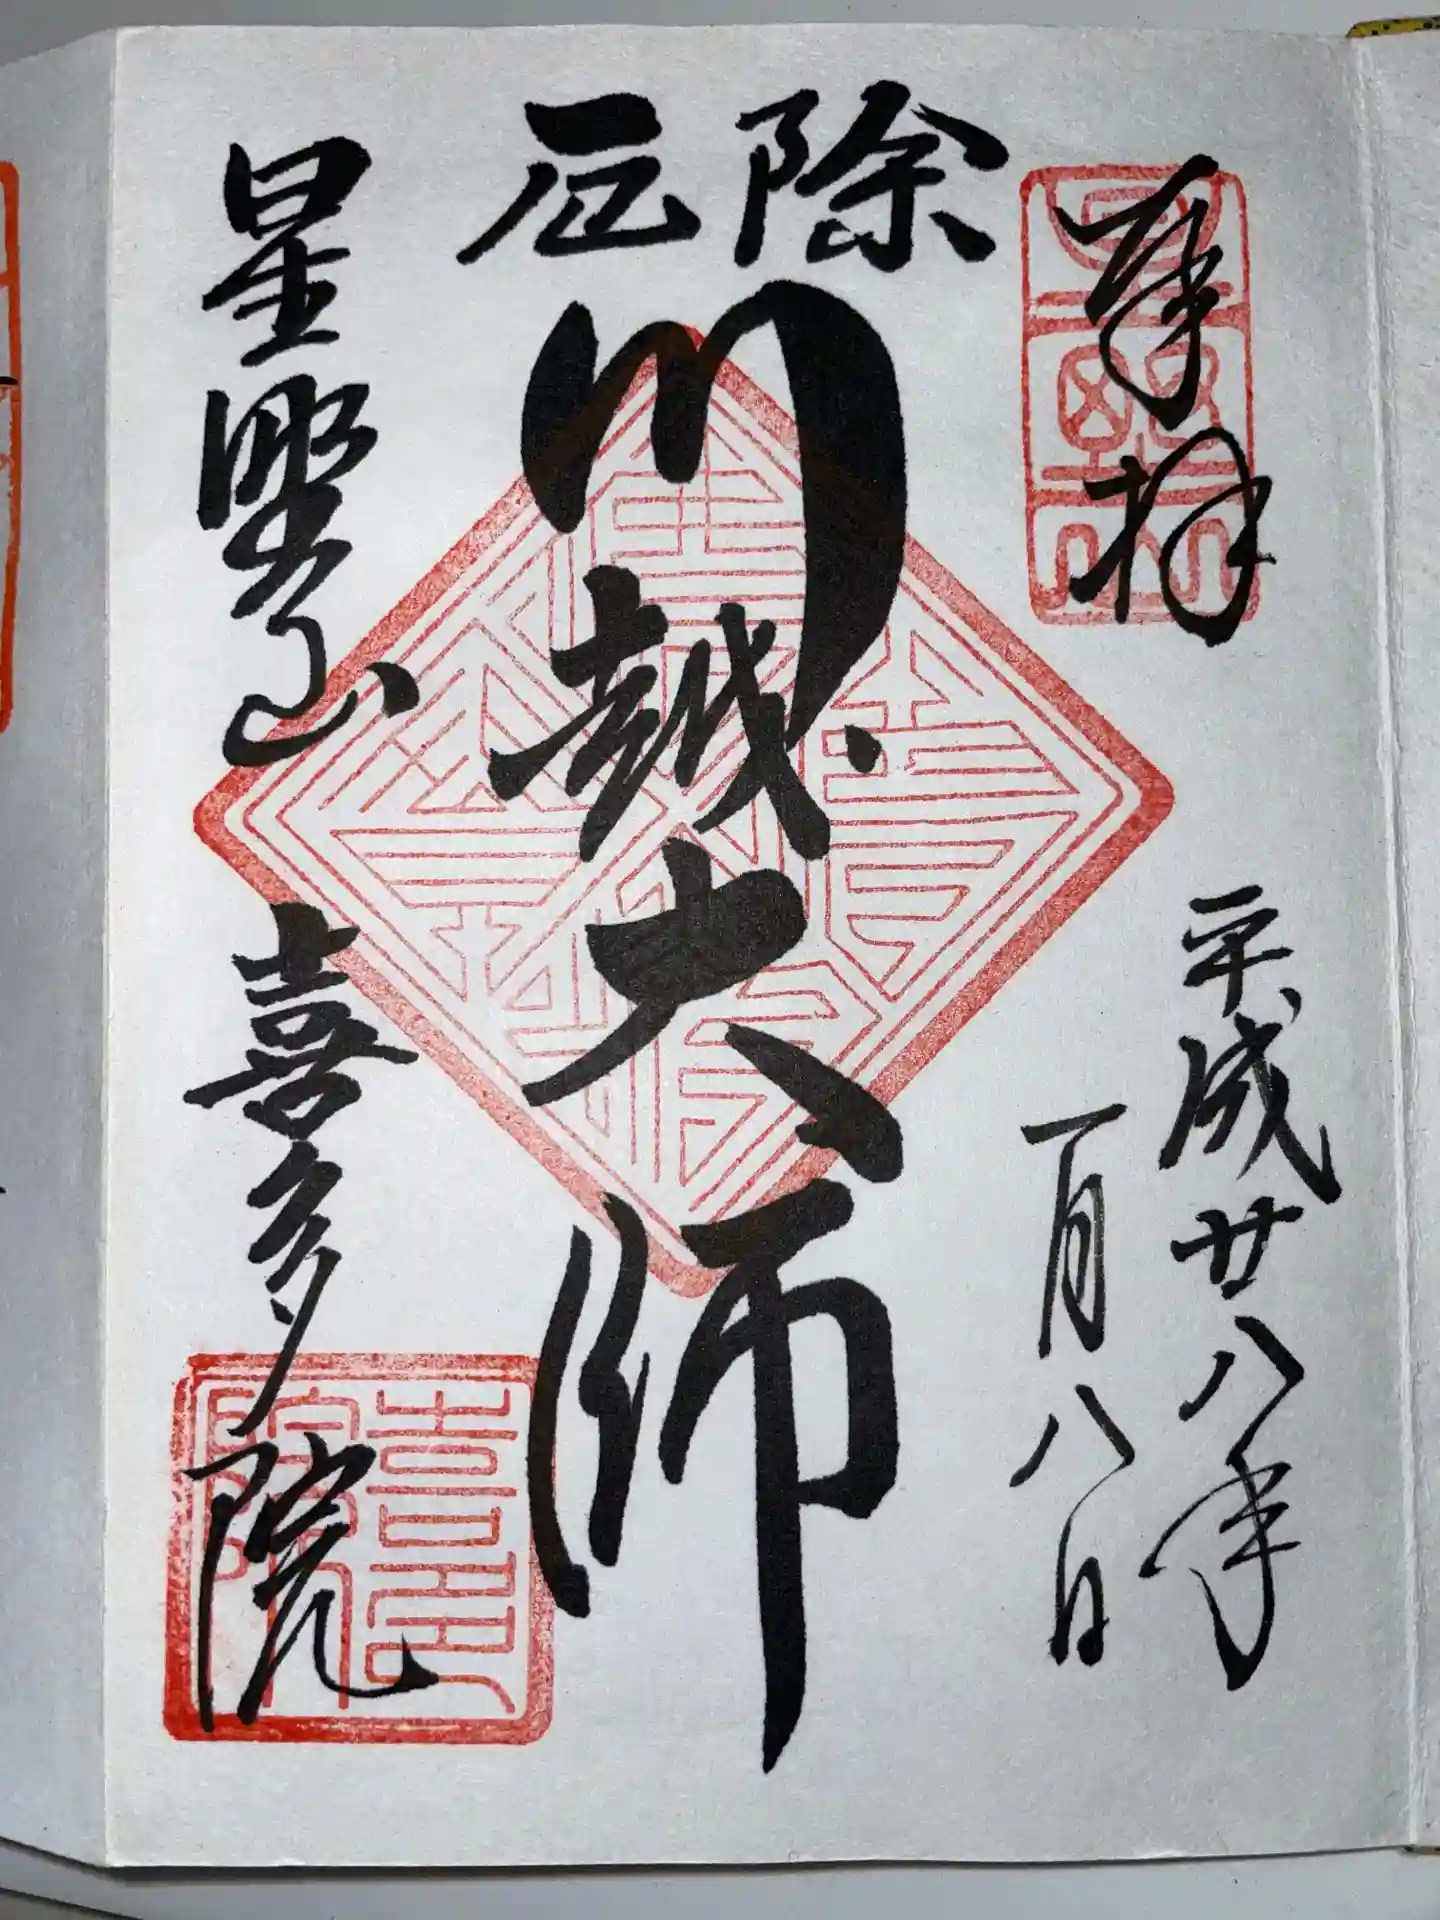 奉拝
平成廿八年
一月八日
除厄
川越大師
星野山
喜多院
喜多院